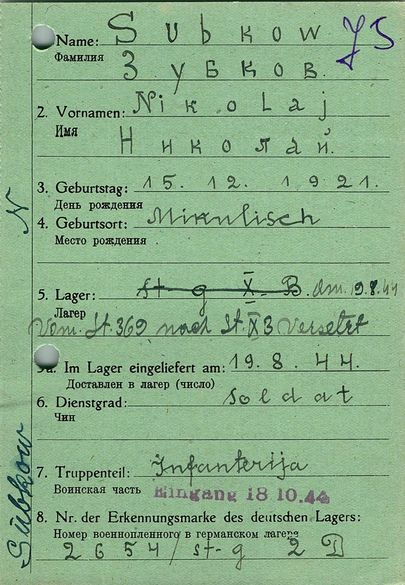 Name: Subkow
Фамилия Зубков.
2. Vornamen: Nikolaj
Имя Николай.
3. Geburtstag: 15. 12. 1921.
День рождения
4. Geburtsort: Mikulisch
Место рождения .
5. Lager: st g X B. am 19.8.44
Лагер
Vom St. 369 nach St X B Versetzt
5a. Im Lager eingeliefert am: 19.8.44.
Доставлен в лагер (число)
6. Dienstgrad: soldat
Чин
7. Truppenteil: Infanterija
Воинская часть Eingang 18 10.44
8. Nr. der Erkennungsmarke des deutschen Lagers:
Номер военнопленного в германском лагере
2654/ st-g 2 D
N
Subkow